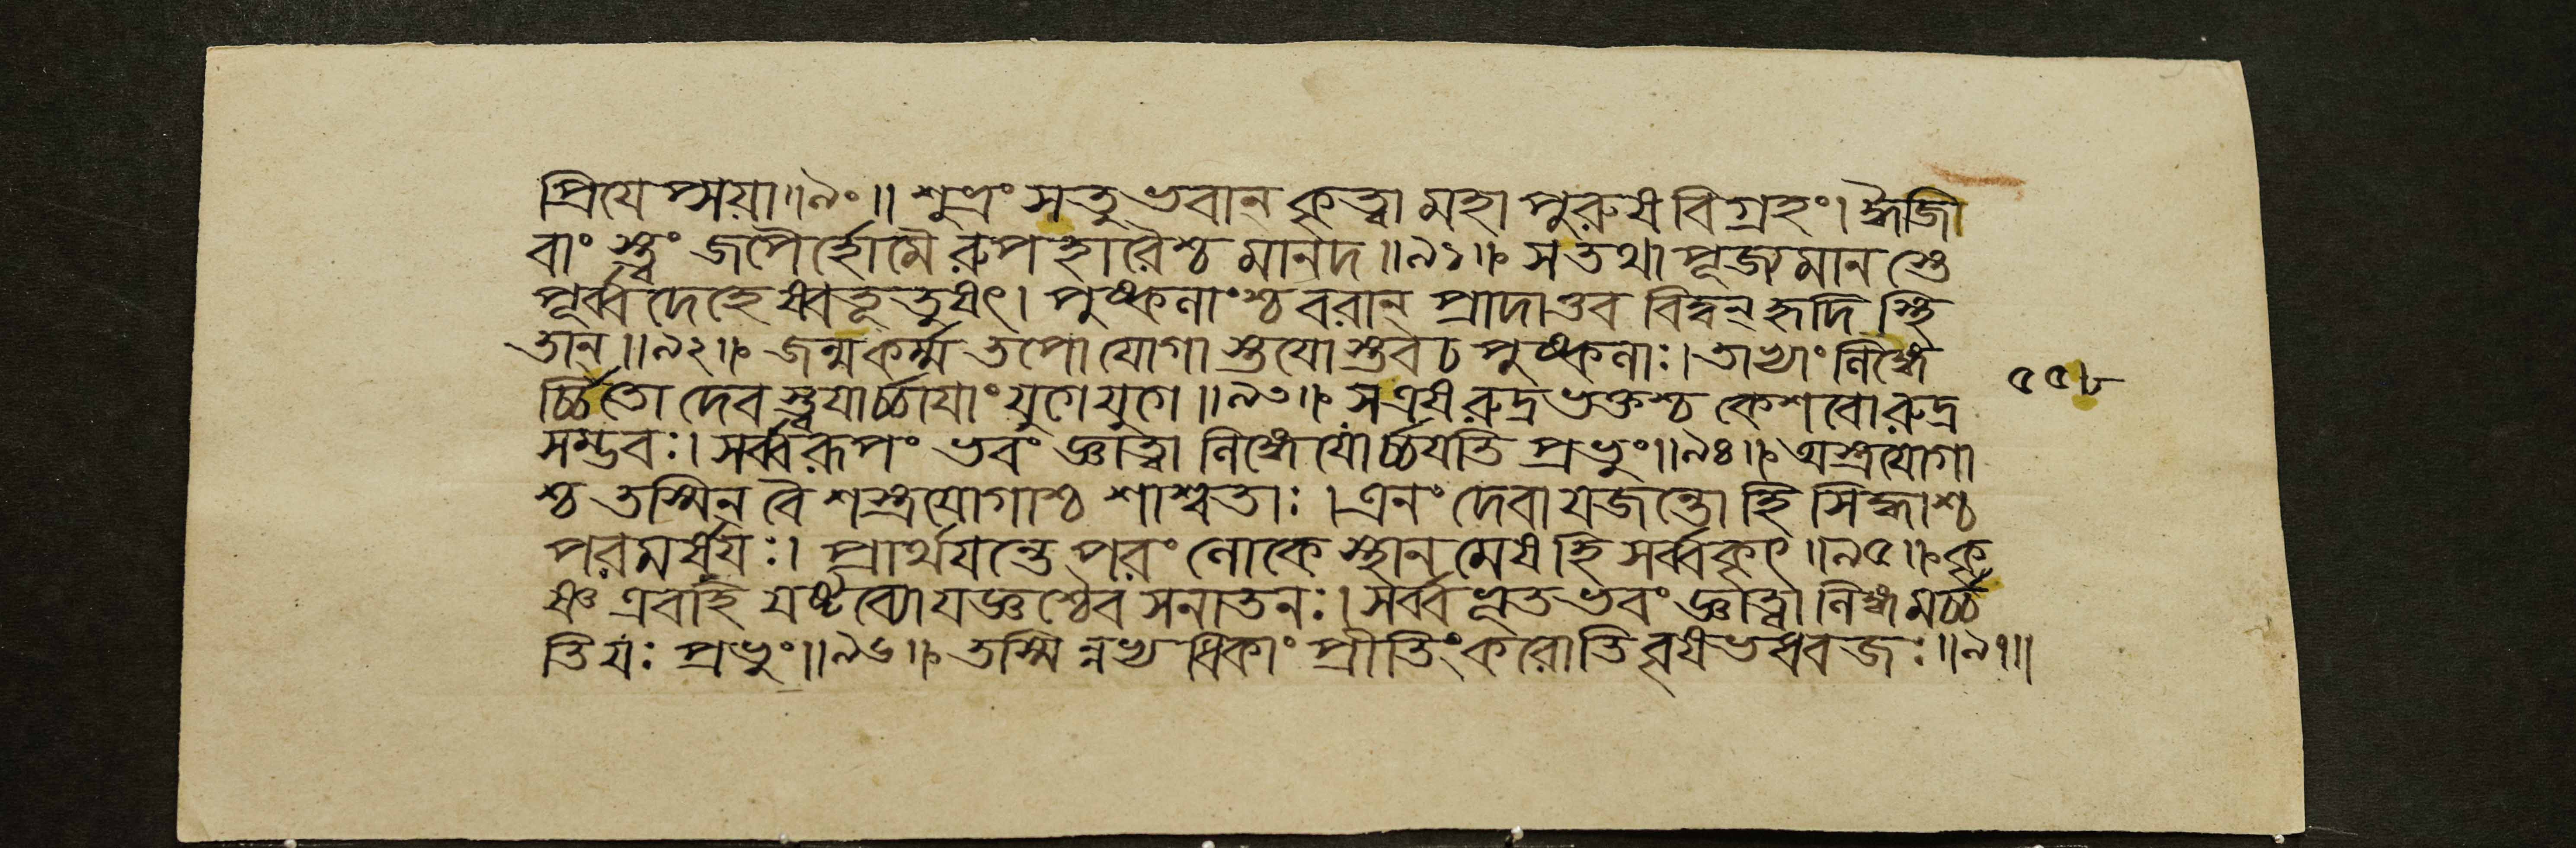 প্রিযেপ্সয়া॥৯০॥ শুভ্রং সতু ভবান্ কৃত্বা মহাপুরুষবিগ্রহং। ঈজি
বাংস্ত্বং জপৈর্হোমৈরুপহারৈশ্চ মানদ॥৯১॥ স তথা পূজ্যমানস্তে
পূর্ব্বদেহেষ্বতূতুষৎ। পুষ্কলাংশ্চ বরান্ প্রাদাত্তব বিদ্বন্ হৃদি স্থি
তান্॥৯২॥ জন্মকর্ম্মতপোযোগাস্তযোস্তব চ পুষ্কলাঃ। তাভ্যাং লিঙ্গে
র্চ্চিতো দেবস্ত্বযার্চ্চাযাং যুগে যুগে॥৯৩॥ স এষ রুদ্রভক্তশ্চ কেশবো রুদ্র
সম্ভবঃ। সর্ব্বরূপং ভবং জ্ঞাত্বা লিঙ্গে যোর্চ্চযতি প্রভুং॥৯৪॥ অস্ত্রযোগা
শ্চ তস্মিন্ বৈ শস্ত্রযোগাশ্চ শাশ্বতাঃ। এনং দেবা যজন্তো হি সিদ্ধাশ্চ
পরমর্ষযঃ। প্রার্থযন্তে পরং লোকে স্থানমেষ হি সর্ব্বকৃৎ॥৯৫॥ কৃ
ষ্ণ এব হি যষ্টব্যো যজ্ঞশ্চৈব সনাতনঃ। সর্ব্বভূতভবং জ্ঞাত্বা লিঙ্গমর্চ্চ
তি যঃ প্রভুং॥৯৬॥ তস্মিন্নভ্যধিকাং প্রীতিং করোতি বৃষভধ্বজঃ॥৯৭॥
৫৫৮